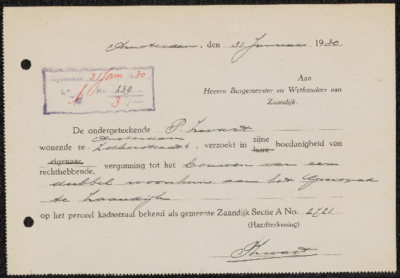 Amsterdam, den 31 Januari 1930
Aan
Heeren Burgemeester en Wethouders van
Zaandijk.
Ingekomen 31 Jan. 30
No. 239
3
De ondergeteekende P. Zwart
Amsterdam
wonende te verzoekt in zijne hare hoedanigheid van
eigenaar,
rechthebbende, vergunning tot het bouwen van een
dubbel woonhuis aan het
te Zaandijk
op het perceel kadastraal bekend als gemeente Zaandijk Sectie A No. 2721
(Handteekening)
P. Zwart